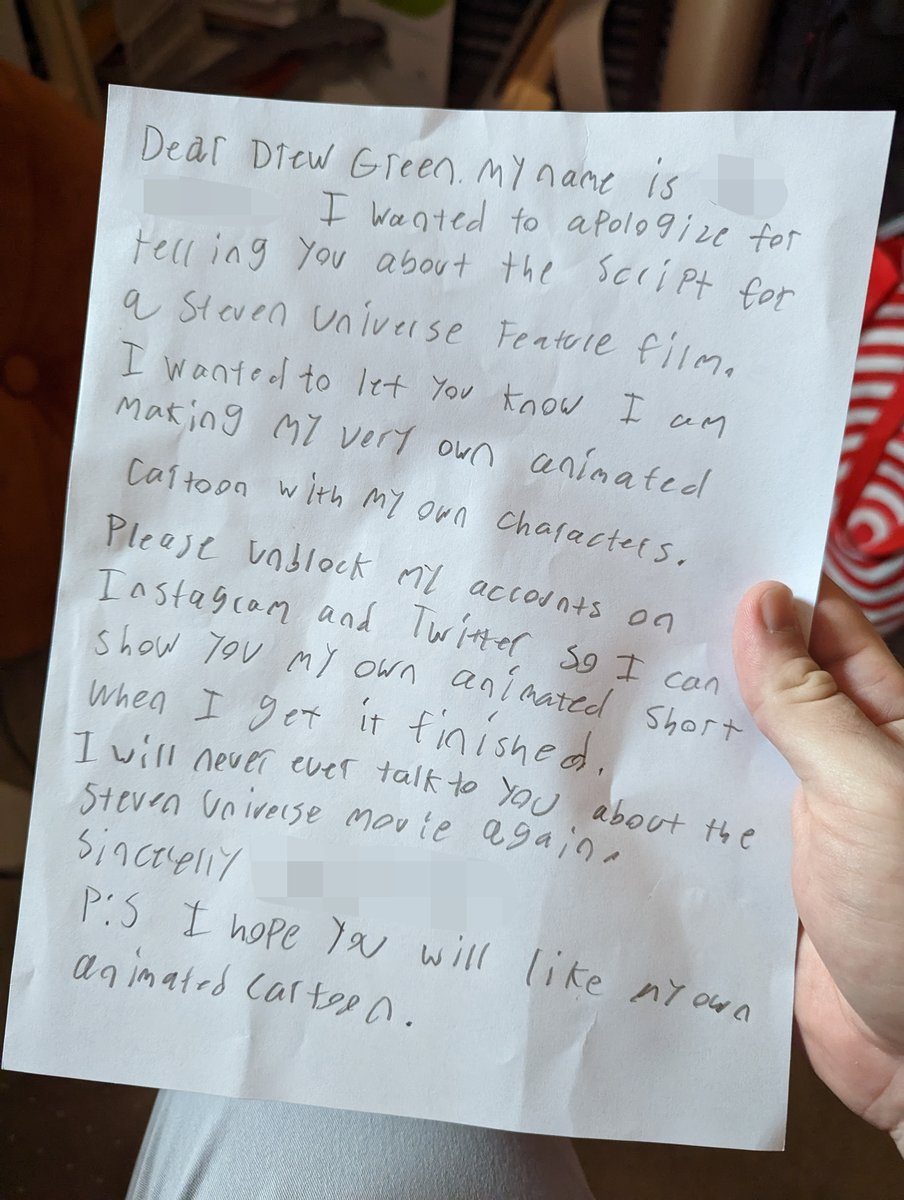 Dear Drew Green. My name is
I wanted to apologize for
telling you about the script for
a Steven Universe Feature film.
I wanted to let you know I am
making my very own animated
cartoon with my own characters.
Please unblock my accounts on
Instagram and Twitter so I can
show you my own animated short
when I get it finished.
I will never ever talk to you about the
Steven Universe movie again.
Sincerelly
P:S I hope you will like my own
animated cartoon.